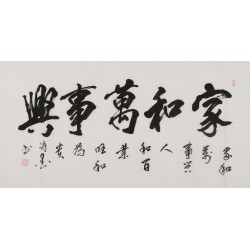 家和萬事興
家和
萬
事興
人
和百
業
旺和
為
貴